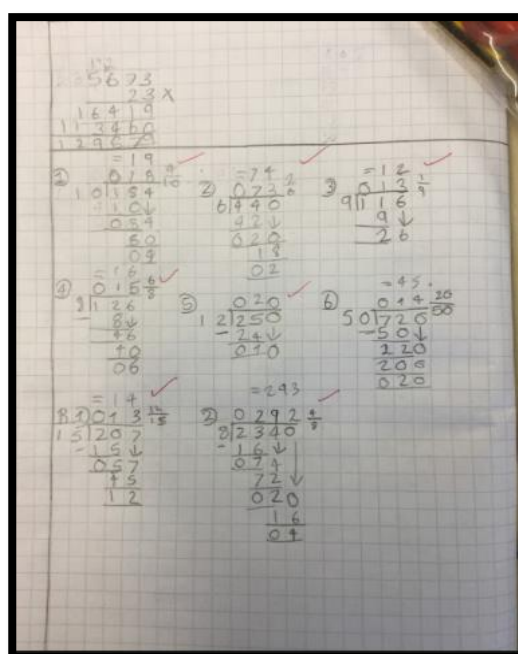 12
5673
23 x
113460
① = 19
018
10
10↓
80
04
2 = 74
073 2/6
6 440
42↓
020
18
02
③ = 12
013
9 116
9↓
26
④ = 16
015 6/8
8 126
- 8↓
46
40
06
⑤ 020
12 250
- 24↓
010
⑥
014 20/50
50 720
- 50↓
220
200
020
B.1 = 14
013 12/15
15 207
- 15↓
057
45
12
② = 293
0292 4/8
8 2340
- 16↓
074
72↓
020
16
04